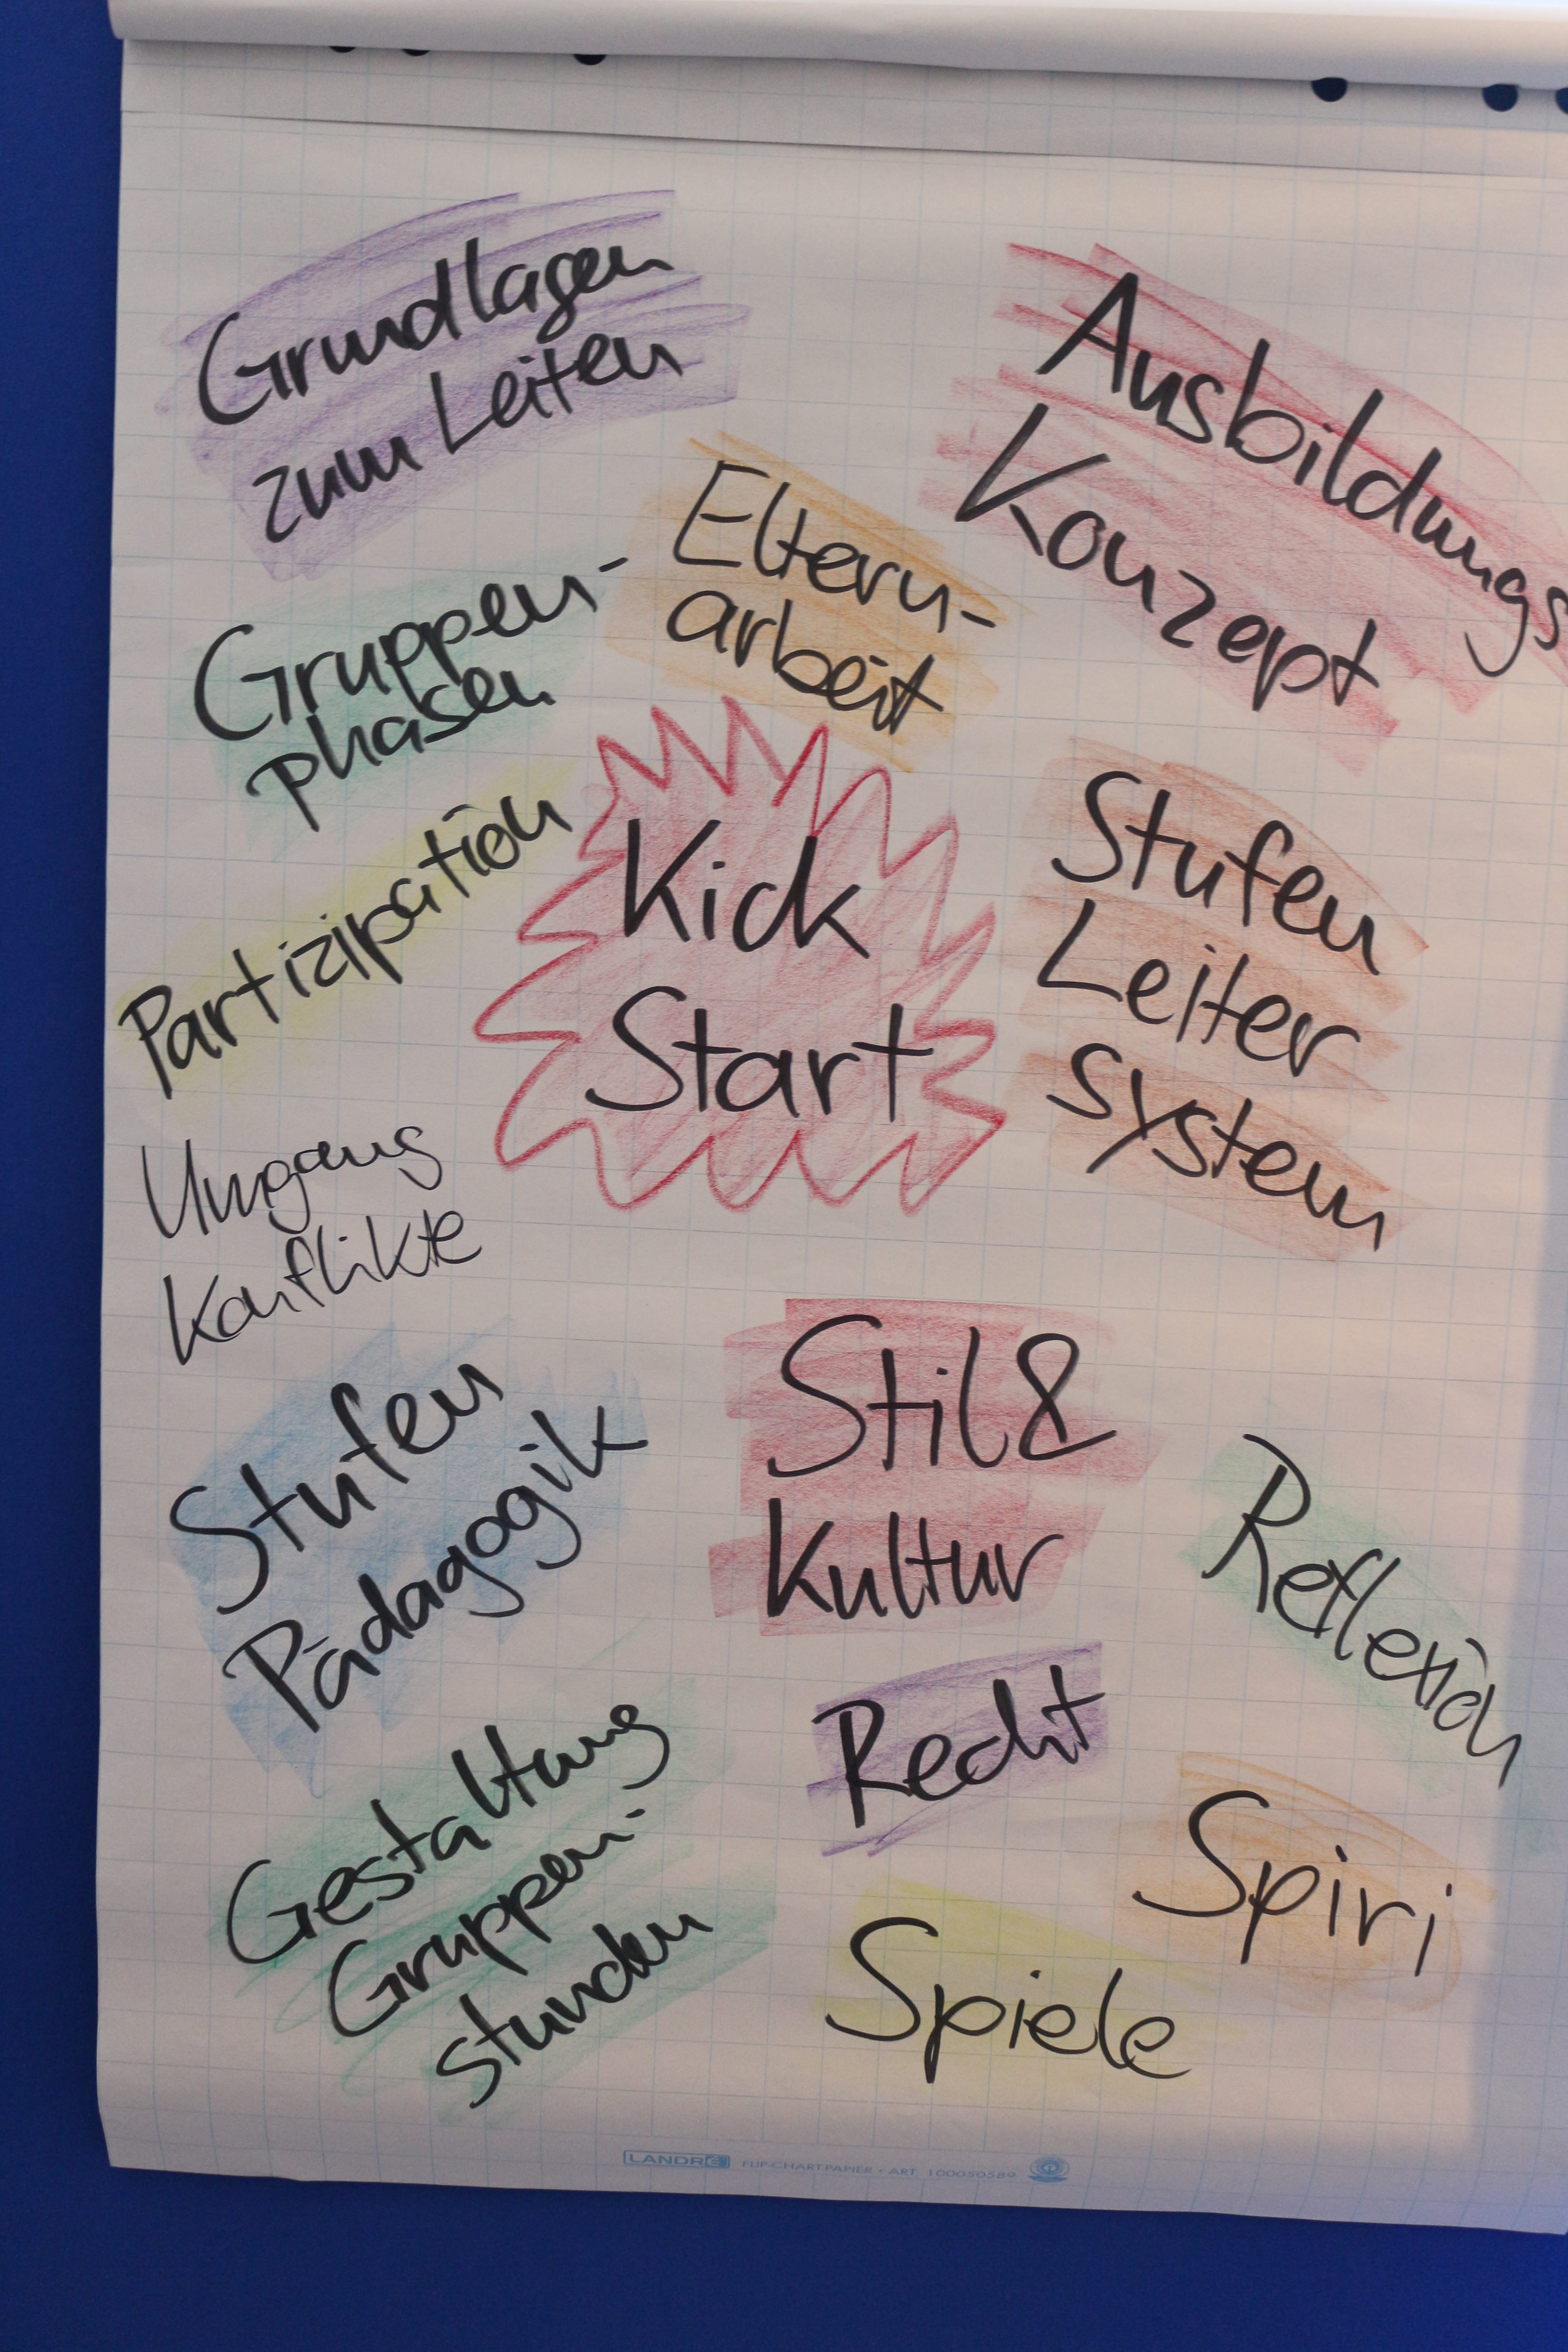 Grundlagen
zum Leiten
Ausbildungs
Konzept
Eltern-
arbeit
Gruppen-
phasen
Partizipation
Kick
Start
Stufen
Leiter
system
Umgang
Konflikte
Stufen
Pädagogik
Stil &
Kultur
Reflexion
Recht
Gestaltung
Gruppen-
stunden
Spiri
Spiele
LANDRÉ FLIP-CHART-PAPIER • ART. 100050589